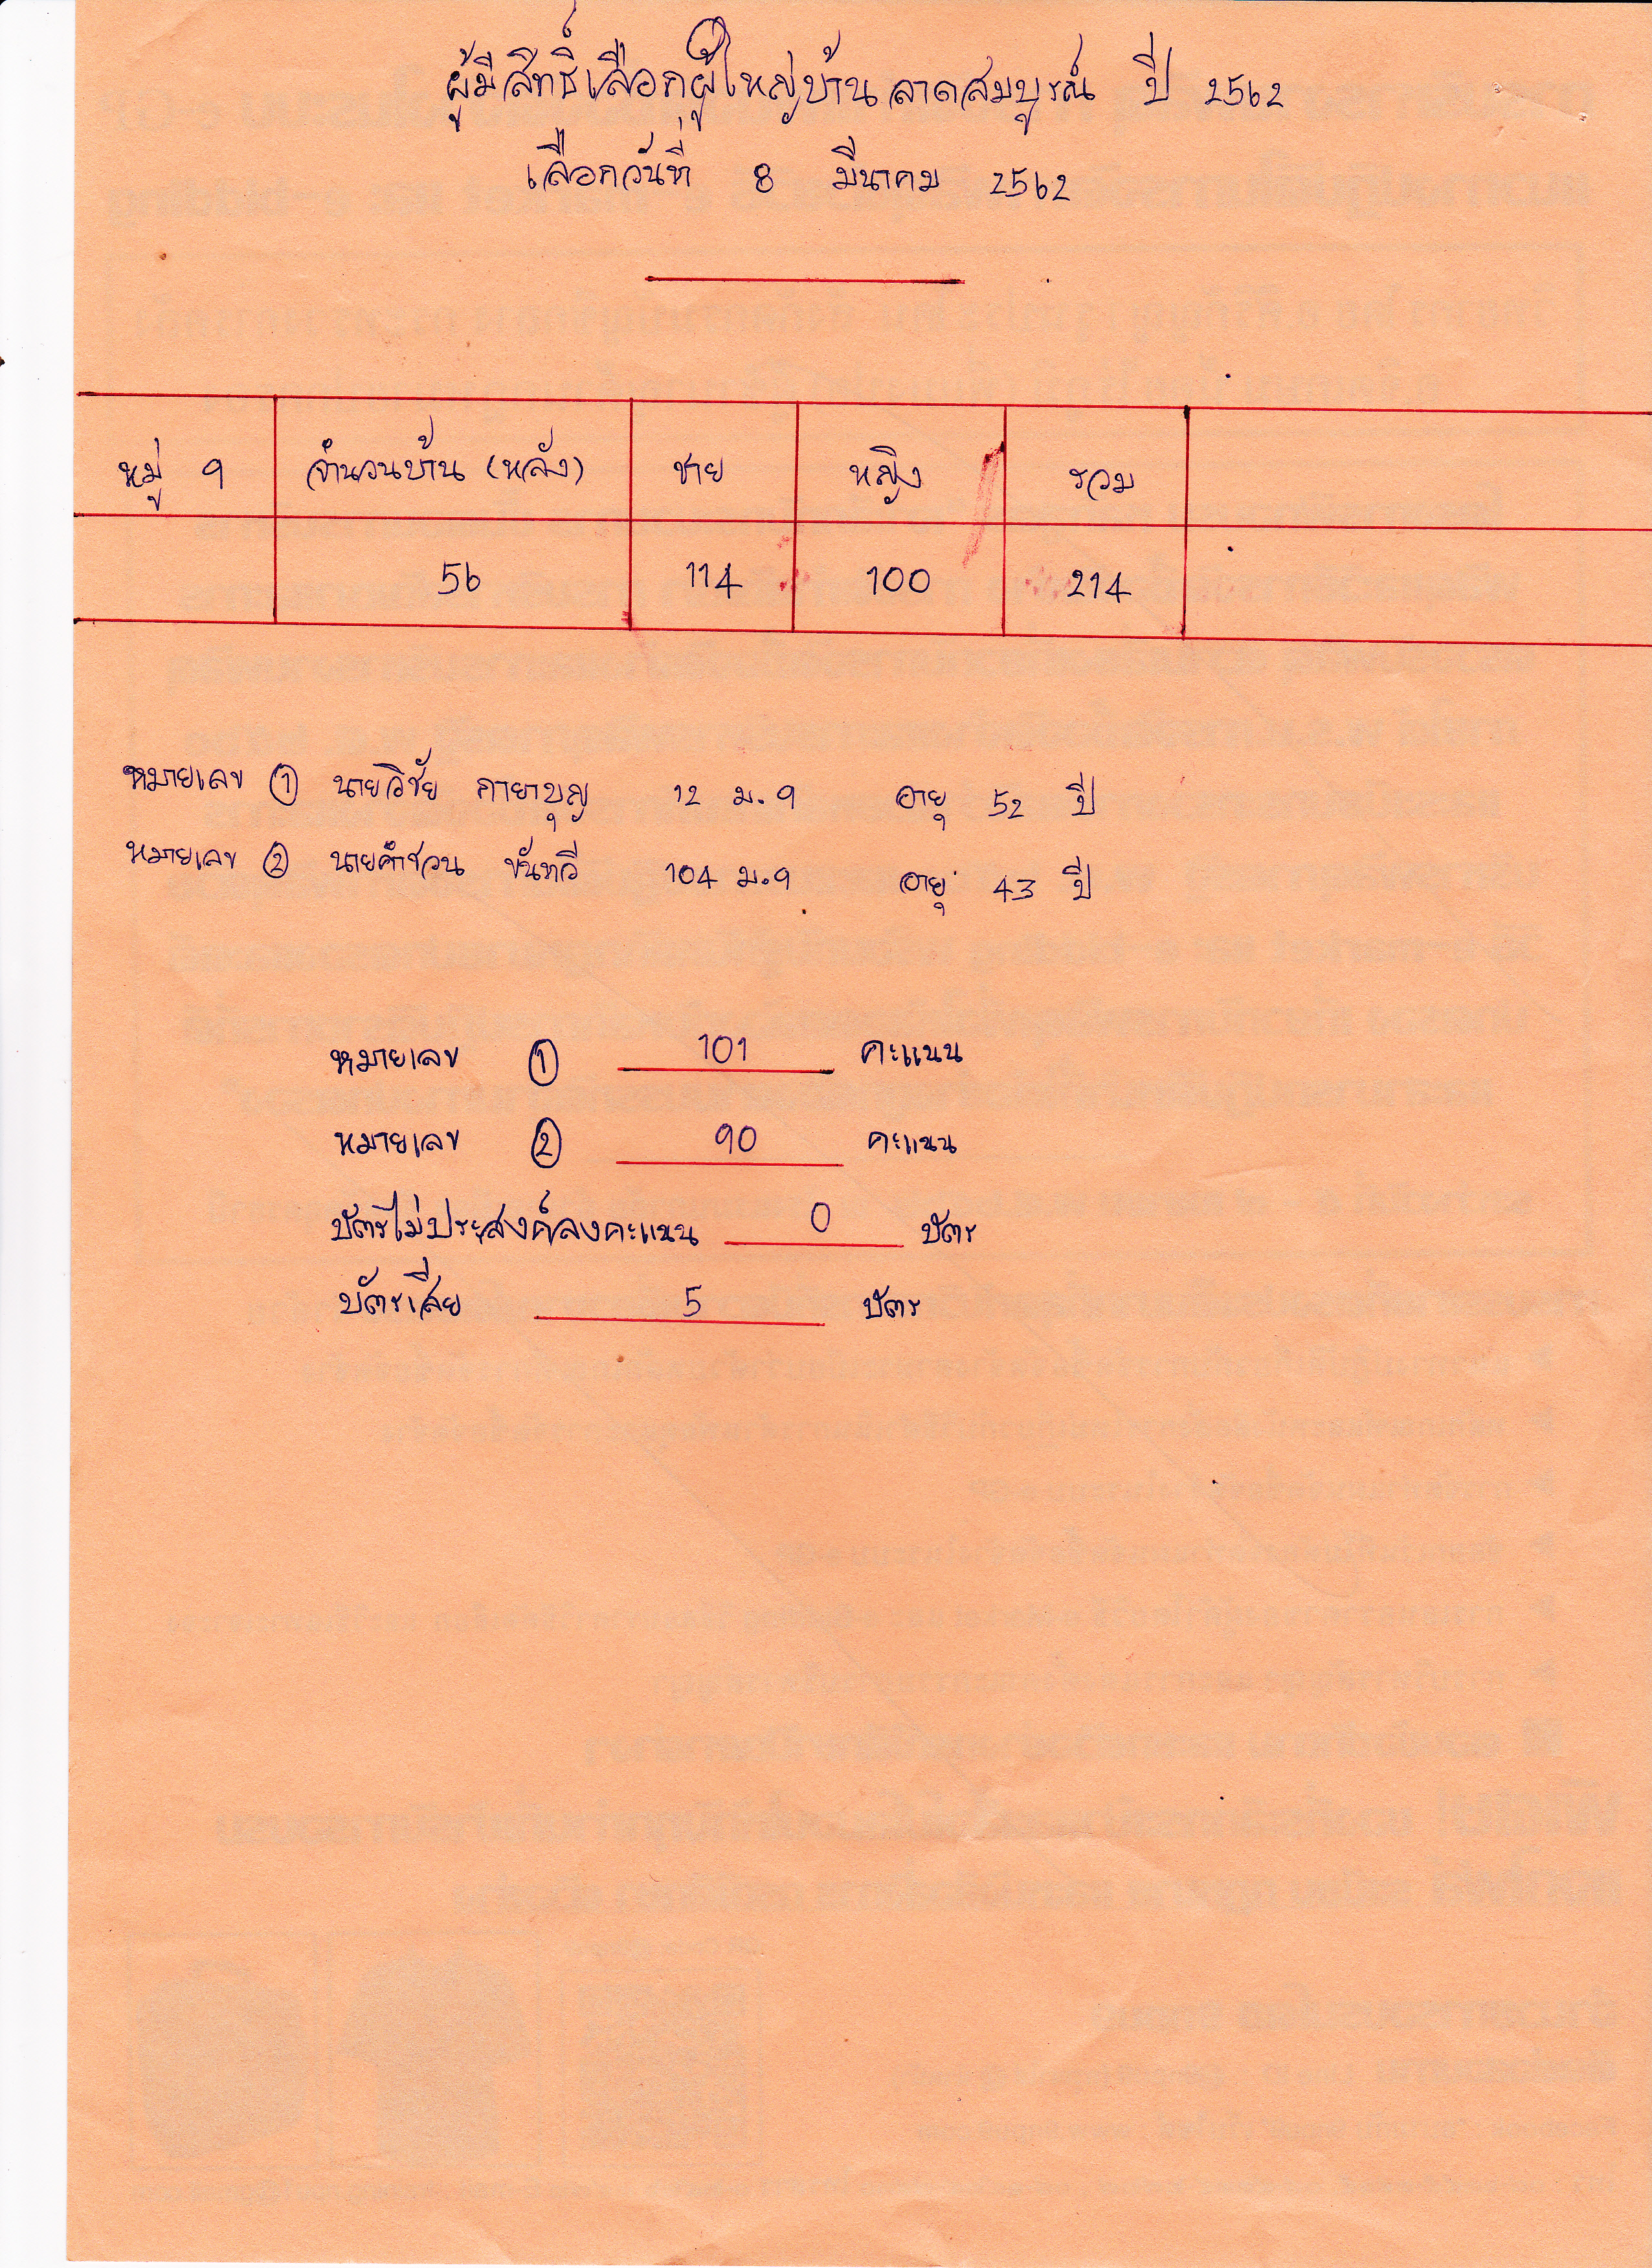 ผู้มีสิทธิ์เลือกผู้ใหญ่บ้านลาดสมบูรณ์ ปี 2562
เลือกวันที่ 8 มีนาคม 2562
หมู่ 9 จำนวนบ้าน (หลัง) ชาย หญิง รวม
56 114 100 214
หมายเลข 1 นายวิชัย กายาบุญ 12 ม.9 อายุ 52 ปี
หมายเลข 2 นายคำชวน ขันทวี 104 ม.9 อายุ 43 ปี
หมายเลข 1 101 คะแนน
หมายเลข 2 90 คะแนน
บัตรไม่ประสงค์ลงคะแนน 0 บัตร
บัตรเสีย 5 บัตร